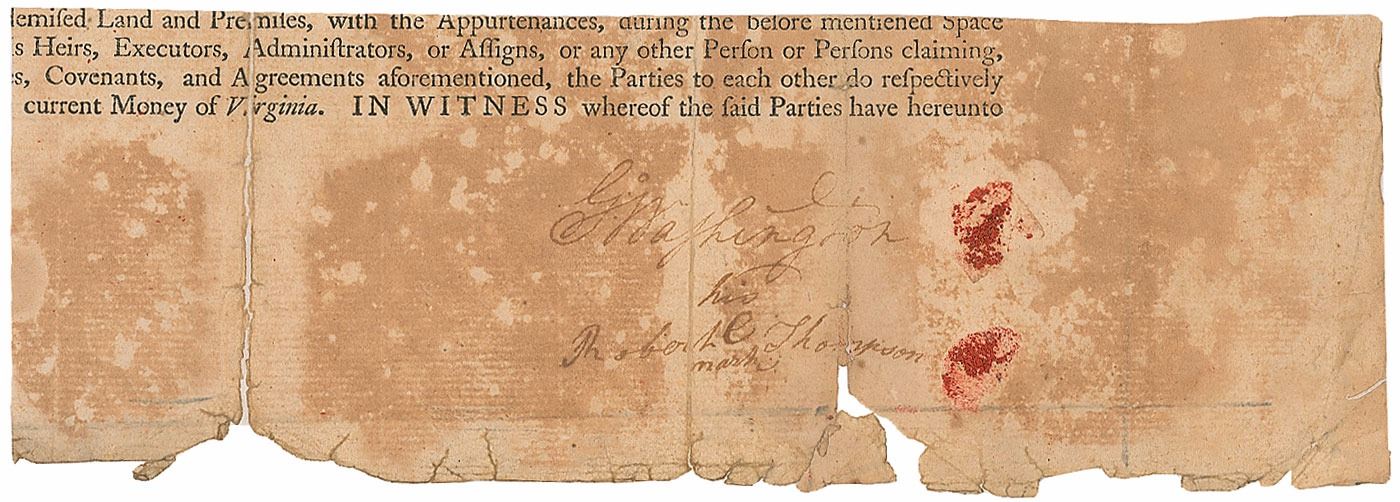 demiſed Land and Premiſes, with the Appurtenances, during the before mentioned Space
s Heirs, Executors, Adminiſtrators, or Aſſigns, or any other Perſon or Perſons claiming,
s, Covenants, and Agreements aforementioned, the Parties to each other do reſpectively
current Money of Virginia. IN WITNESS whereof the ſaid Parties have hereunto
Go Washington
his
Robert C Thompson
mark